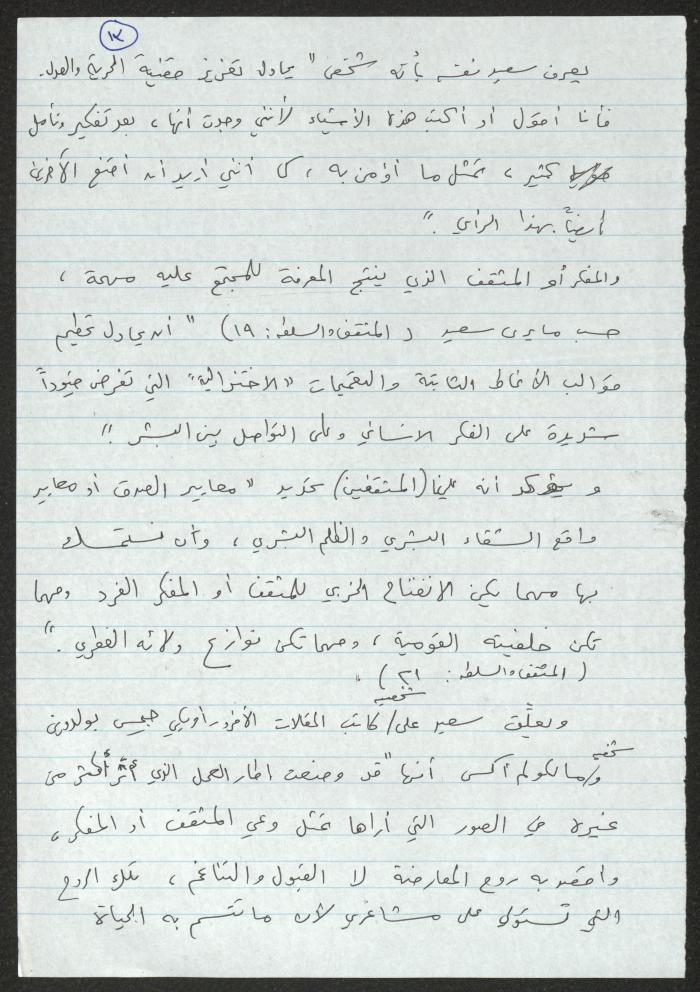 ١٢
يعرف سعيد نفسه بأنه شخص " يحاول تعزيز قضية الحرية والعدل.
فأنا أقول أو أكتب هذه الأشياء لأنني وجدت أنها، بعد تفكير وتأمل
كثير، تمثل ما أؤمن به، كما أنني أريد أن أقنع الآخرين
أيضاً بهذا الرأي."
والمفكر أو المثقف الذي ينتج المعرفة للمجتمع عليه مهمة،
حسب ما يرى سعيد ( المثقف والسلطة: ١٩) " أن يحاول تحطيم
قوالب الأنماط الثابتة والتعميمات "الاختزالية" التي تفرض قيوداً
شديدة على الفكر الانساني وعلى التواصل بين البشر."
و يؤكد أنه علينا (المثقفين) تحديد " معايير الصدق أو معايير
واقع الشقاء البشري والظلم البشري، وأن نستمسك
بها مهما يكن الانفتاح الحزبي للمثقف أو المفكر الفرد ومهما
تكن خلفيته القومية، ومهما تكن نوازع ولائه الفطري."
( المثقف والسلطة: ٢١ ).
ويعلّق سعيد على / شخصية كاتب المقالات الأفرو-أمريكي جيمس بولدوين
و/ شخصية مالكولم أكس أنها "قد وضعت اطار العمل الذي أثّر أكثر من
غيره في الصور التي أراها تمثل وعي المثقف أو المفكر،
واقصد به روح المعارضة لا القبول والتناغم، تلك الروح
التي تستولي على مشاعري لأن ما تتسم به الحياة